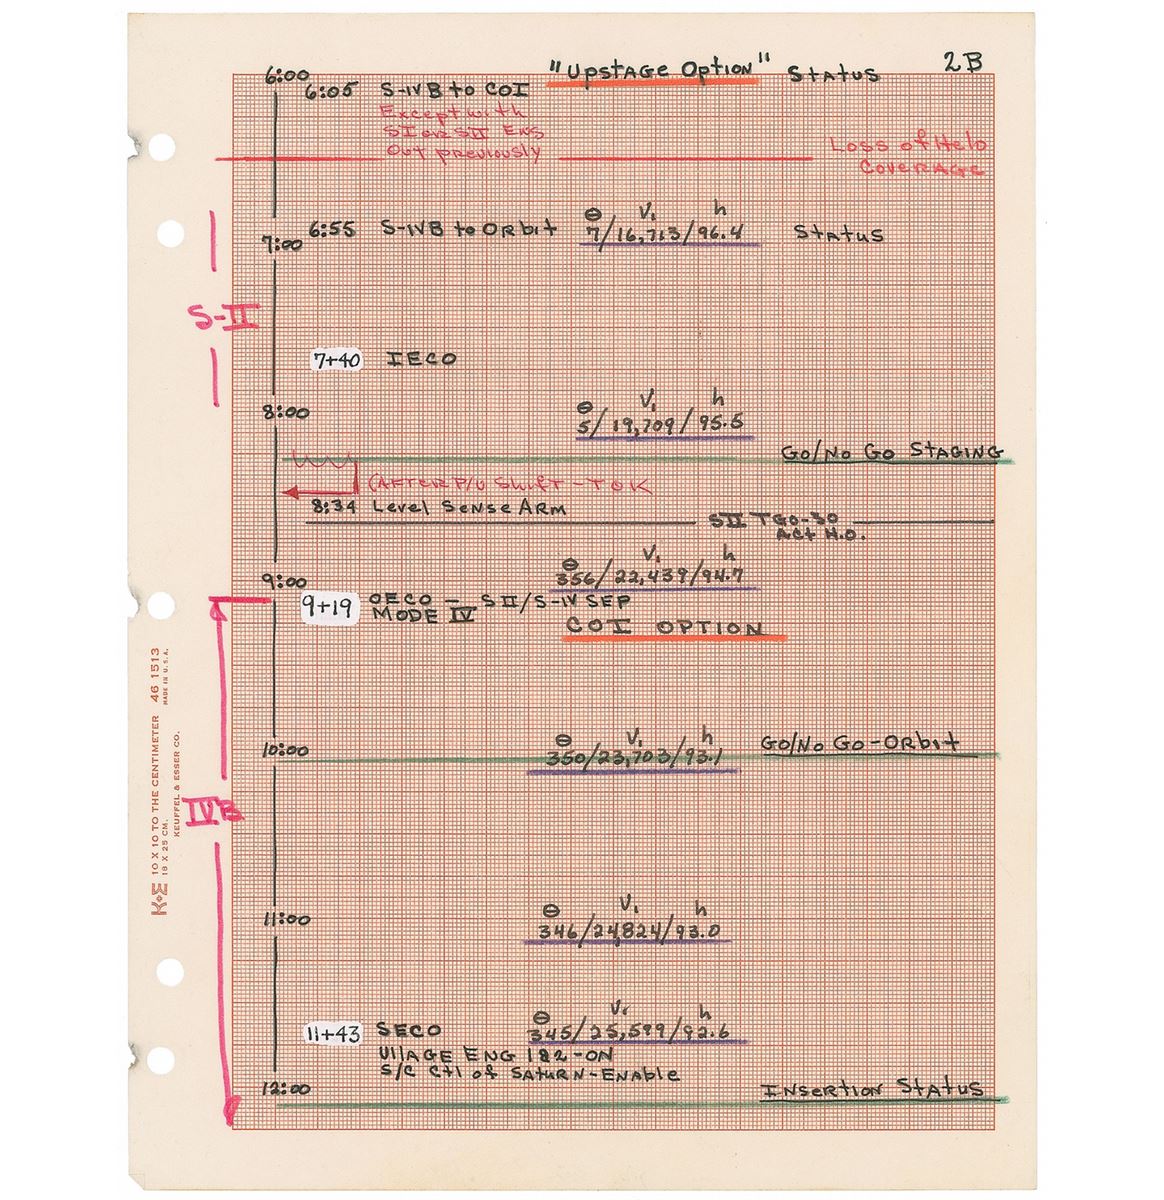 "Upstage Option" Status 2B
6:00
6:05 S-IVB to COI
Except with
SI or SII ENG
Out previously
Loss of Helo
Coverage
θ Vi h
6:55 S-IVB to Orbit 7/16,713/96.4 Status
7:00
S-II
7+40 IECO
θ Vi h
8:00
5/19,709/95.5
Go/No Go Staging
(After P/U Shift - TOK
8:34 Level Sense Arm
SII TGO-30
Act H.O.
θ Vi h
9:00
356/22,439/94.7
9+19 OECO - SII/S-IV SEP
MODE IV
COI OPTION
θ Vi h
10:00 350/23,703/93.1 Go/No Go-Orbit
IVB
θ Vi h
11:00
346/24,824/93.0
θ Vi h
11+43 SECO 345/25,599/92.6
Ullage Eng 1&2-ON
S/C Ctl of Saturn-Enable
12:00 Insertion Status
K+E 10 X 10 TO THE CENTIMETER 46 1513
18 X 25 CM. MADE IN U.S.A.
KEUFFEL & ESSER CO.